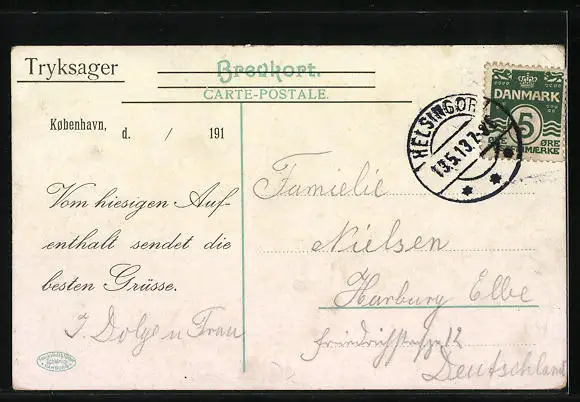 Tryksager
Brevkort.
CARTE-POSTALE.
København, d. / 191
HELSINGØR
13.5.13.7-
DANMARK
5
ØRE
Vom hiesigen Auf-
enthalt sendet die
besten Grüsse.
Familie
Nielsen
Harburg Elbe
Friedrichstrasse 12
Deutschland
J Dolge u Frau